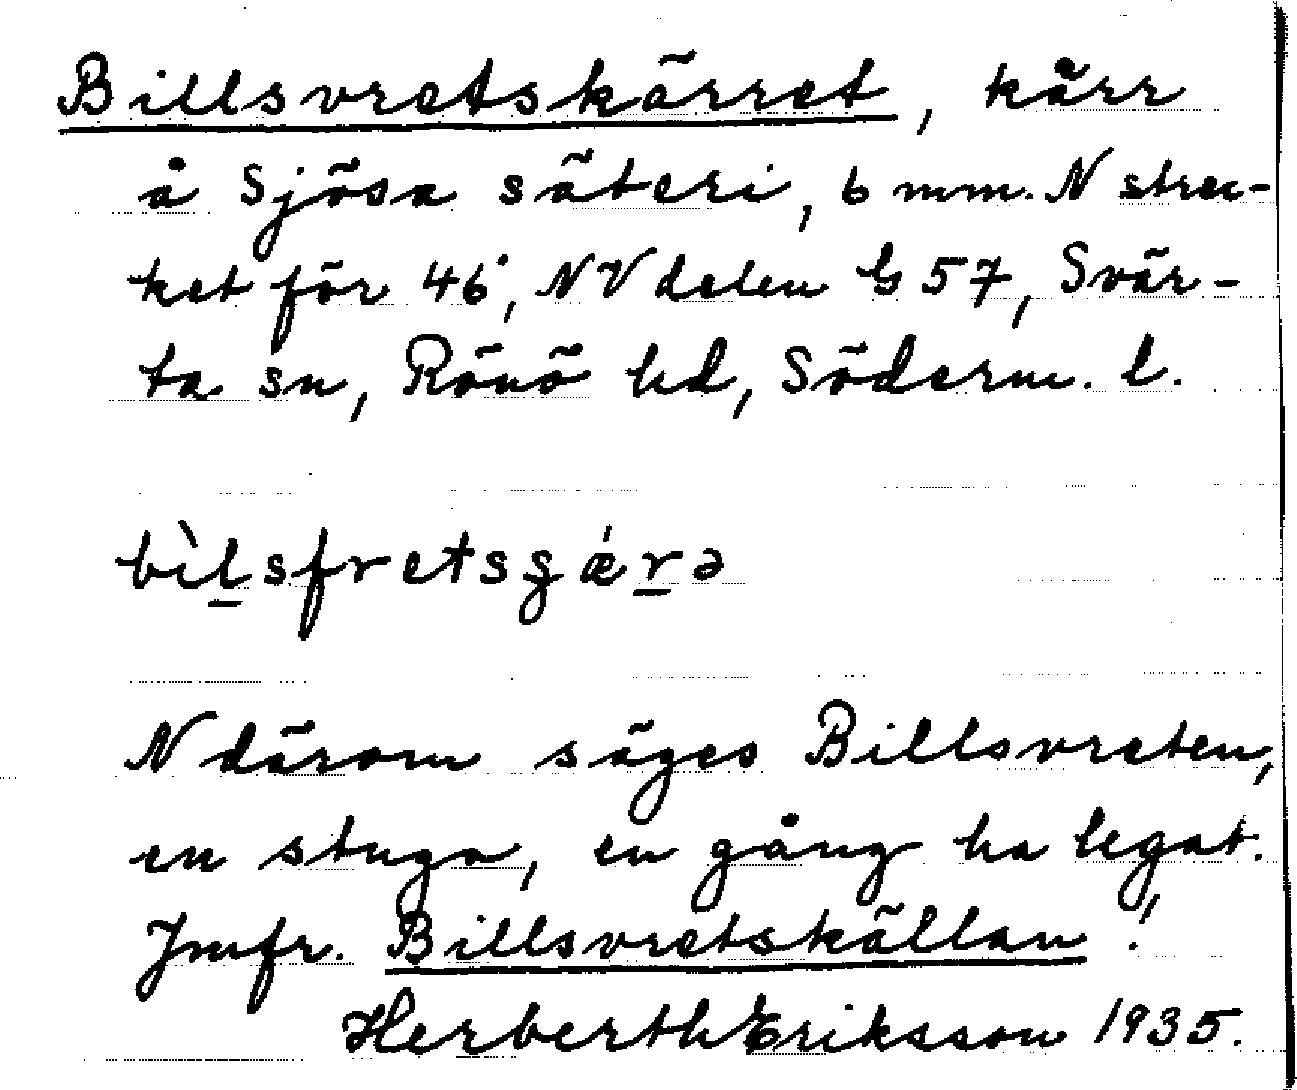 Billsvretskärret, kärr
å Sjösa säteri, 6 mm. N strec-
ket för 46', NV delen G 57, Svär-
ta sn, Rönö hd, Söderm. l.
bìl̲sfretsgǽr̲ə
N därom säges Billsvreten,
en stuga, en gång ha legat.
Jmfr. Billsvretskällan!
Herberth Eriksson 1935.